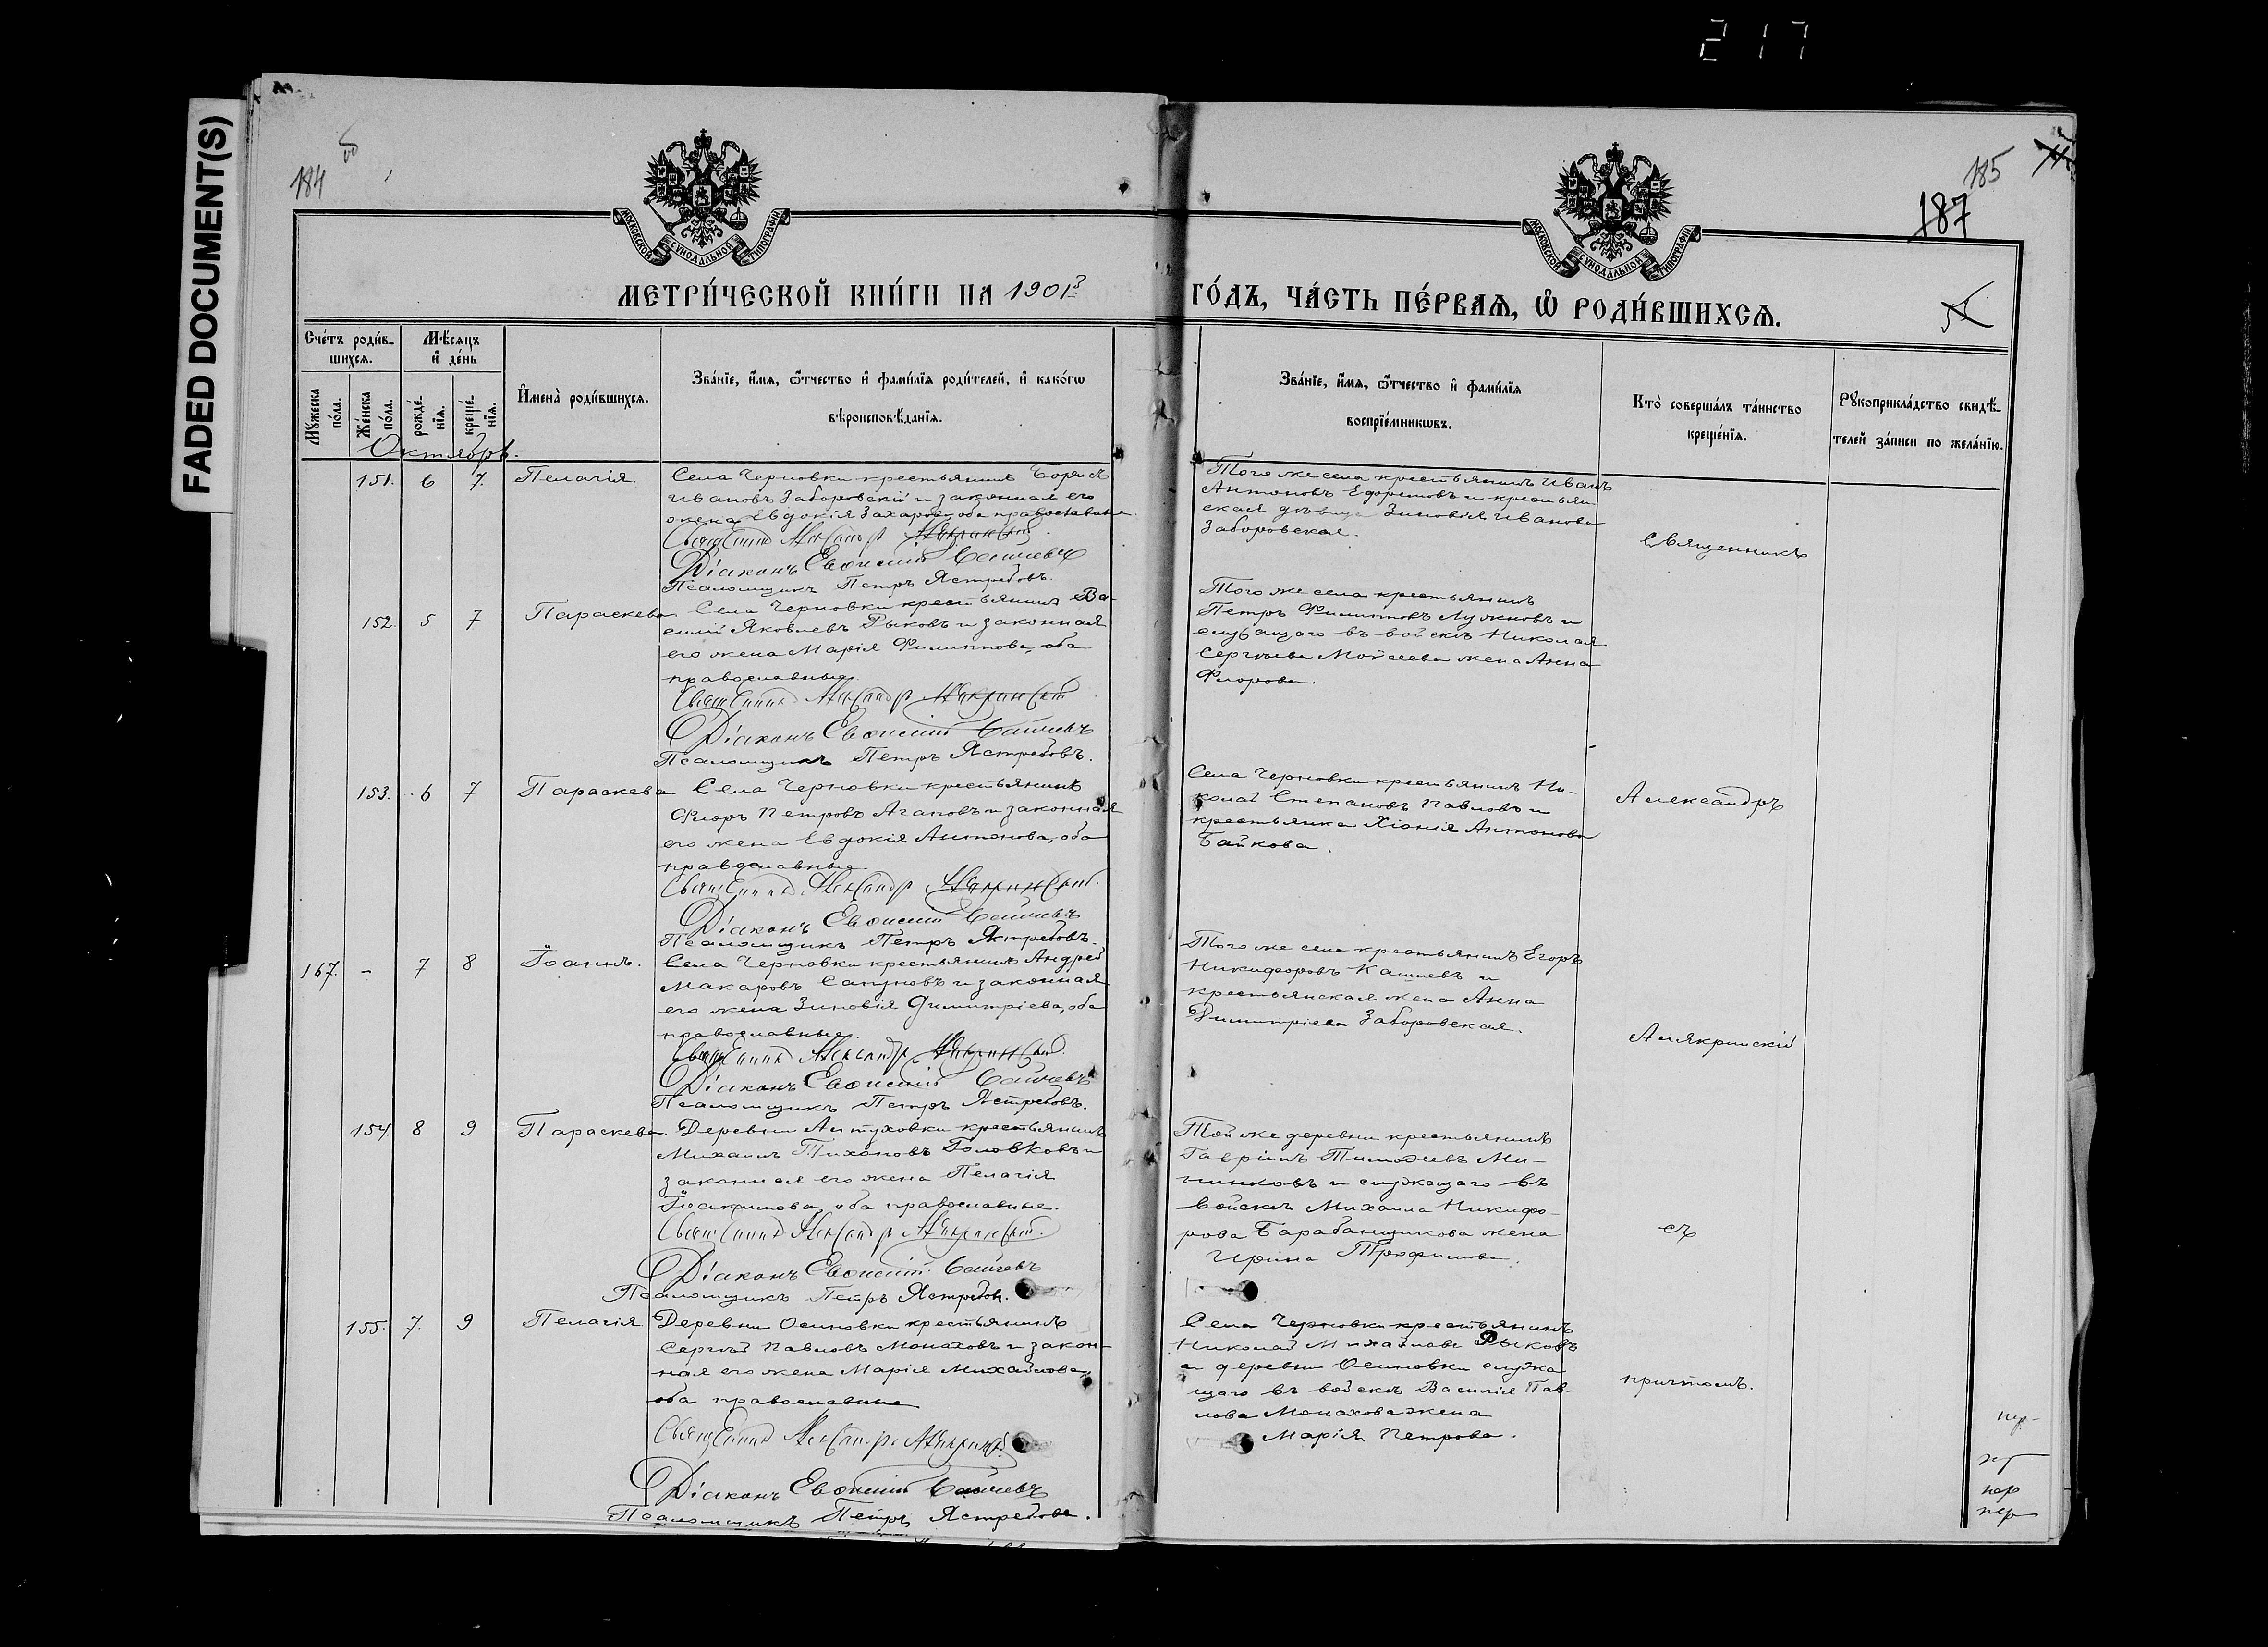 217
FADED DOCUMENT(S)
184
185
187
МОСКОВСКОЙ СѴНОДАЛЬНОЙ ТИПОГРАФІИ
МОСКОВСКОЙ СѴНОДАЛЬНОЙ ТИПОГРАФІИ
МЕТРИ́ЧЕСКОЙ КНИ́ГИ НА 1901й ГО́ДЪ, ЧА́СТЬ ПЕ́РВАѦ, Ѽ РОДИ́ВШИХСѦ.
Сче́тъ роди́в-
шихсѧ.
Мꙋжеска по́ла.
Же́нска по́ла.
Мѣ́сѧцъ и҆ де́нь
рожде́-нїѧ.
креще́-нїѧ.
И҆мена̀ роди́вшихсѧ.
Зва́нїе, и҆́мѧ, ѻ҆́тчество и҆ фами́лїѧ роди́телей, и҆ како́гѡ
вѣроисповѣ́данїѧ.
Зва́нїе, и҆́мѧ, ѻ҆́тчество и҆ фами́лїѧ
воспрїе́мникѡвъ.
Кто̀ соверша́лъ та́инство
креще́нїѧ.
Рꙋкоприкла́дство свидѣ́-
телей за́писи по жела́нїю.
Октябрь.
151. 6 7. Пелагія
Села Черновки крестьянинъ Борисъ
Ивановъ Заборовскій и законная его
жена Евдокія Захарова, оба православные.
Священникъ Александръ Алякринскій.
Діаконъ Евѳимій Сайчевъ
Псаломщикъ Петръ Ястребовъ.
Того же села крестьянинъ Иванъ
Антоновъ и крестьян
ская дѣвица Зиновія Иванова
Заборовская.
152. 5 7 Параскева
Села Черновки крестьянинъ Ва-
силій Яковлевъ Рыковъ и законная
его жена Марія Филиппова, оба
православные.
Священникъ Александръ Алякринскій
Діаконъ Евѳимій Сайчевъ
Псаломщикъ Петръ Ястребовъ.
Того же села крестьянинъ
Петръ Филиповъ и
служащаго въ войскѣ Николая
Сергѣева Моисеева жена Анна
Флорова.
153. 6 7 Параскева
Села Черновки крестьянинъ
Флоръ Петровъ Агаповъ и законная
его жена Евдокія Антонова, оба
православные.
Священникъ Александръ Алякринскій.
Діаконъ Евѳимій Сайчевъ
Псаломщикъ Петръ Ястребовъ.
Села Черновки крестьянинъ Ни-
колай Степановъ Павловъ и
крестьянка Хіонія Антонова
Байкова.
167. - 7 8 Іоаннъ.
Села Черновки крестьянинъ Андрей
Макаровъ Сапуновъ и законная
его жена Зиновія Димитріева, оба
православные.
Священникъ Александръ Алякринскій.
Діаконъ Евѳимій Сайчевъ
Псаломщикъ Петръ Ястребовъ.
Того же села крестьянинъ Егоръ
Никифоровъ и
крестьянская жена Анна
Димитріева Заборовская.
154. 8 9 Параскева.
Деревни крестьянинъ
Михаилъ Тихоновъ Головковъ и
законная его жена Пелагія
Іоакимова, оба православные.
Священникъ Александръ Алякринскій.
Діаконъ Евѳимій Сайчевъ
Псаломщикъ Петръ Ястребовъ.
Той же деревни крестьянинъ
Гавріилъ Тимоѳеевъ Ми-
нинковъ и служащаго въ
войскѣ Михаила Никифо-
рова Барабанщикова жена
Ирина Трофимова.
155. 7. 9 Пелагія
Деревни Осиновки крестьянинъ
Сергѣй Павловъ Монаховъ и закон-
ная его жена Марія Михайлова,
оба православные
Священникъ Александръ Алякринскій
Діаконъ Евѳимій Сайчевъ
Псаломщикъ Петръ Ястребовъ.
Села Черновки крестьянинъ
Николай Михайловъ Рыковъ
и деревни Осиновки служа
щаго въ войскѣ Василія Пав-
лова Монахова жена
Марія Петрова.
Священникъ
Александръ
Алякринскій
съ
причтомъ.